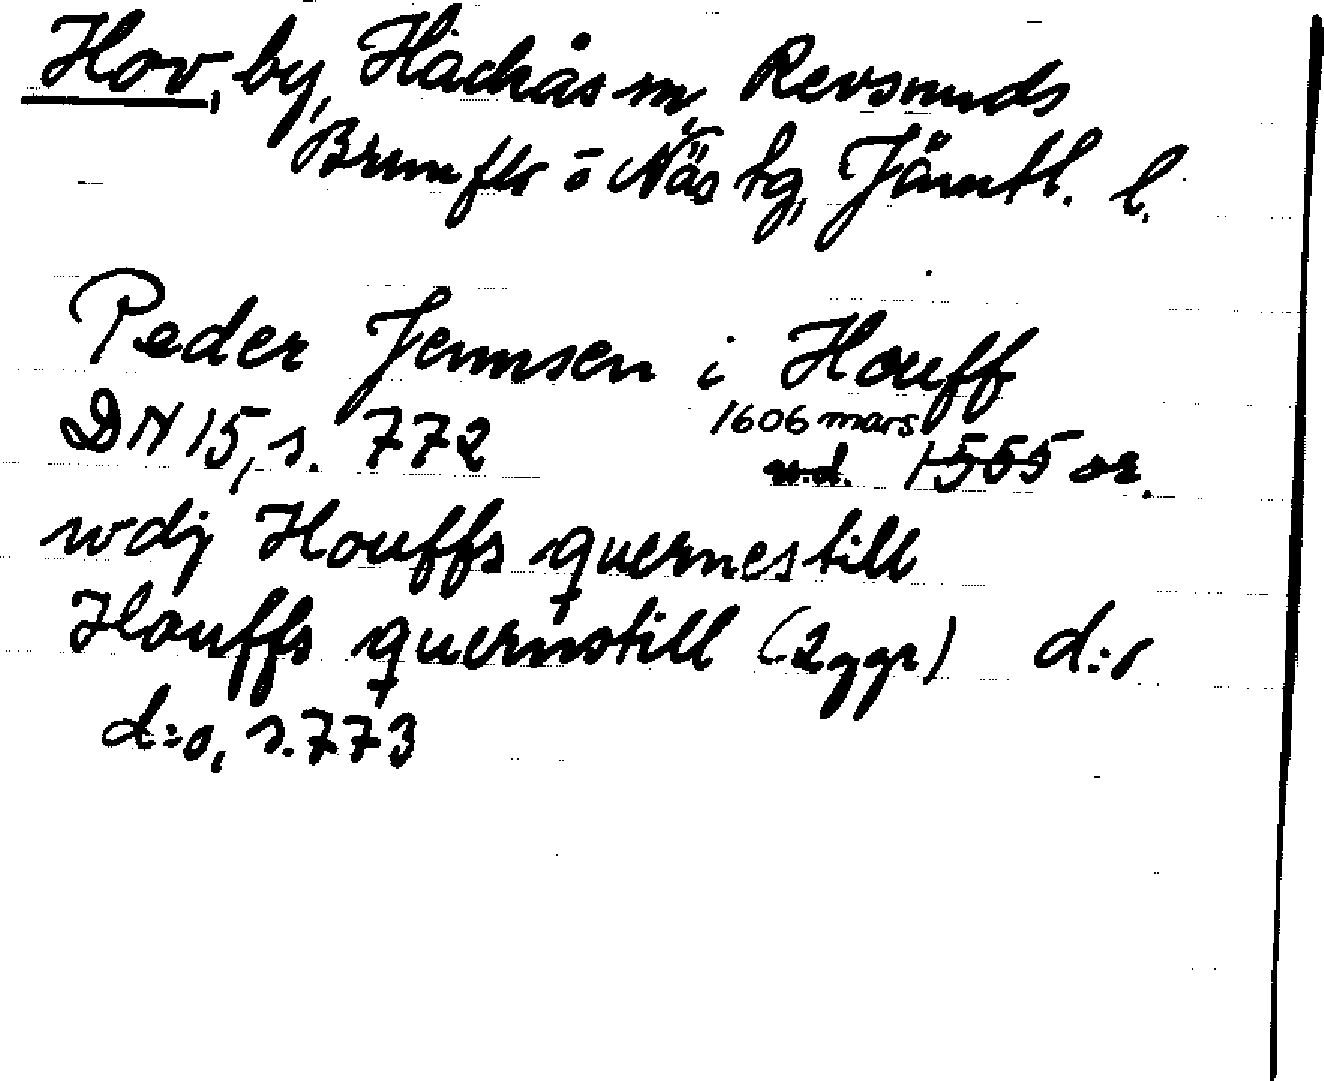 Hov, by, Hackås sn, Revsunds
Brunflo o Näs tg, Jämtl. l.
Peder Jennsen i Houff
1606 mars
DN 15, s. 772 u.d. 1565 or.
wdj Houffs quernestill
Houffs quernstill (2 ggr) d:o
d:o, s. 773